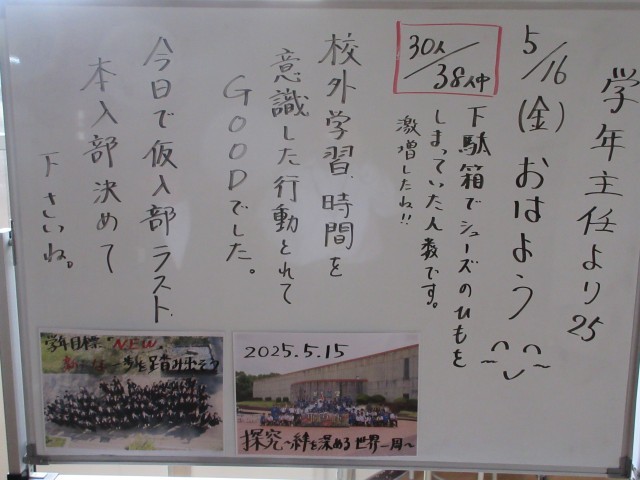 学年主任より25
5/16(金)おはよう
30人/38人中
下駄箱でシューズのひもを
しまっていた人数です。
激増したね!!
校外学習、時間を
意識した行動とれて
GOODでした。
今日で仮入部ラスト、
本入部決めて
下さいね。
学年目標「NEW」
新たな一歩を踏み出そう
2025.5.15
探究〜絆を深める世界一周〜